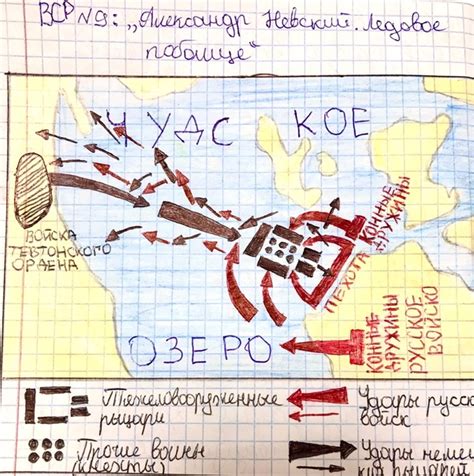 ВСР №9: „Александр Невский. Ледовое
побоище“
ЧУДС КОЕ
ВОЙСКА
ТЕВТОНСКОГО
ОРДЕНА
КОННЫЕ
ДРУЖИНЫ
ПЕХОТА
КОННЫЕ
ДРУЖИНЫ
РУССКОЕ
ВОЙСКО
ОЗЕРО
Тяжеловооруженные
рыцари
Прочие воины
(кнехты)
Удары русс
войск
Удары неме
ких рыцарей